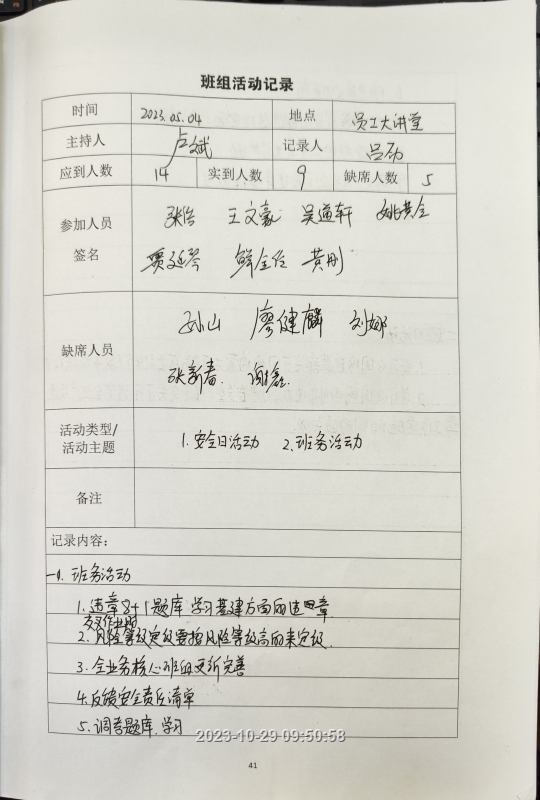 班组活动记录
时间 2023.05.04 地点 员工大讲堂
主持人 卢斌 记录人 吕劲
应到人数 14 实到人数 9 缺席人数 5
参加人员
签名
张浩 王文豪 吴道轩 姚共全
贾延琴 鲜全位 黄刚
缺席人员
孙山 廖健麟 刘娜
张新春 谢鑫
活动类型/
活动主题
1.安全日活动 2.班务活动
备注
记录内容:
一、班务活动
1.违章8+1题库 学习基建方面的违章
交叉作业时
2.风险等级定级要按风险等级高的来定级
3.全业务核心班组更新完善
4.反馈安全责任清单
5.调考题库.学习
2023-10-29 09:50:58
41